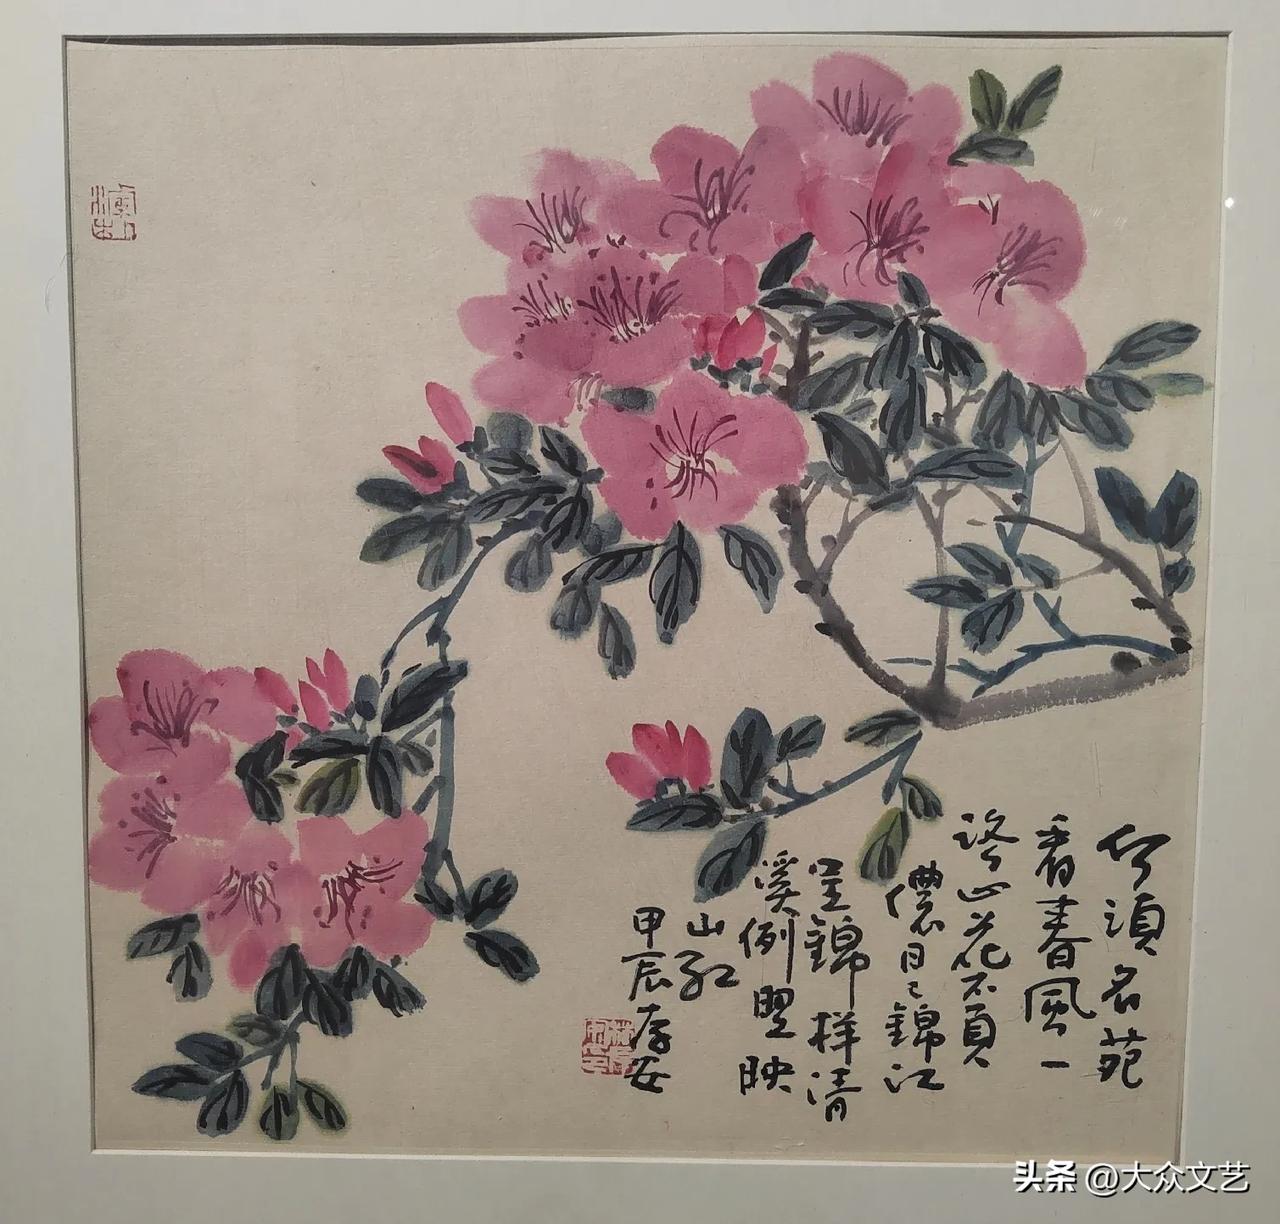 何須名苑
看春風一
路山花不負
儂日々錦江
呈錦样清
溪倒照映
山紅
甲辰存安
头条 @大众文艺